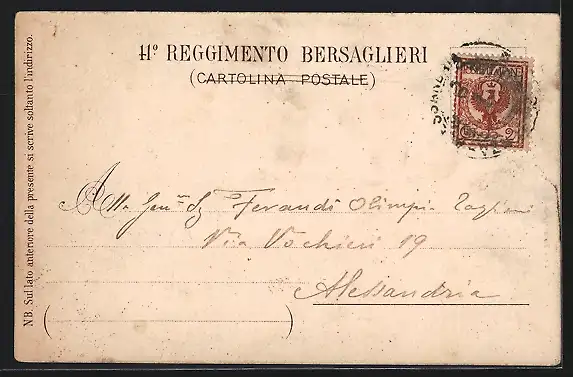 11º REGGIMENTO BERSAGLIERI
(CARTOLINA POSTALE)
Alla Gen.ma Sig Ferandi Olimpia
Via Vochieri 19
Alessandria
N.B. Sul lato anteriore della presente si scrive soltanto l'indirizzo.